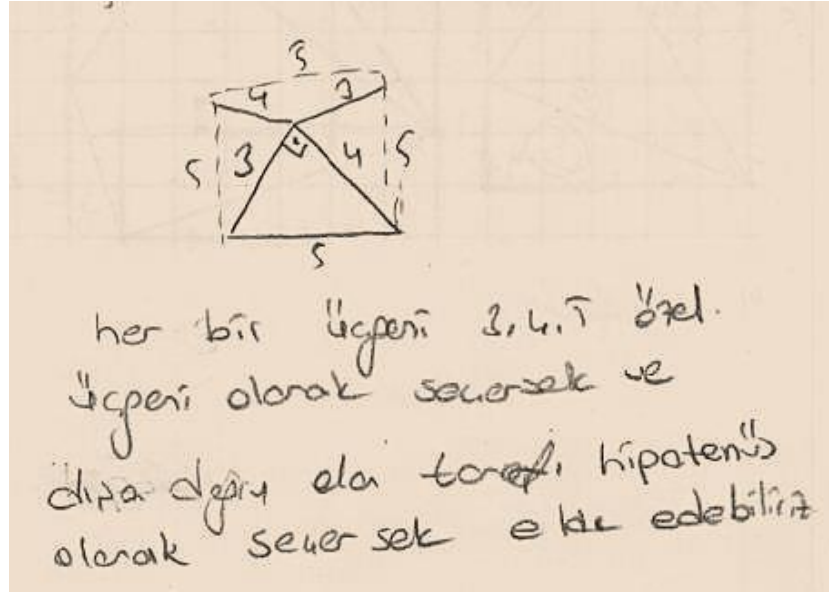 5
4 3
5 3 4 5
5
her bir üçgeni 3,4,5 özel
üçgeni olarak seçersek ve
dışa doğru olan tarafı hipotenüs
olarak seçersek elde edebiliriz